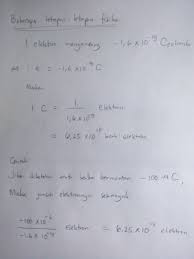 Beberapa tetapan-tetapan fizika
1 elektron mengandung -1,6 x 10⁻¹⁹ Coulomb
1 e = -1,6 x 10⁻¹⁹ C
Maka
1 C = 1 / 1,6 x 10⁻¹⁹ elektron
= 6,25 x 10 elektron
Contoh
Jika diketahui bermuatan -100 C,
Maka jumlah elektronnya sebanyak
-100 x 10 / -1,6 x 10 elektron = 6,25 x 10 elektron